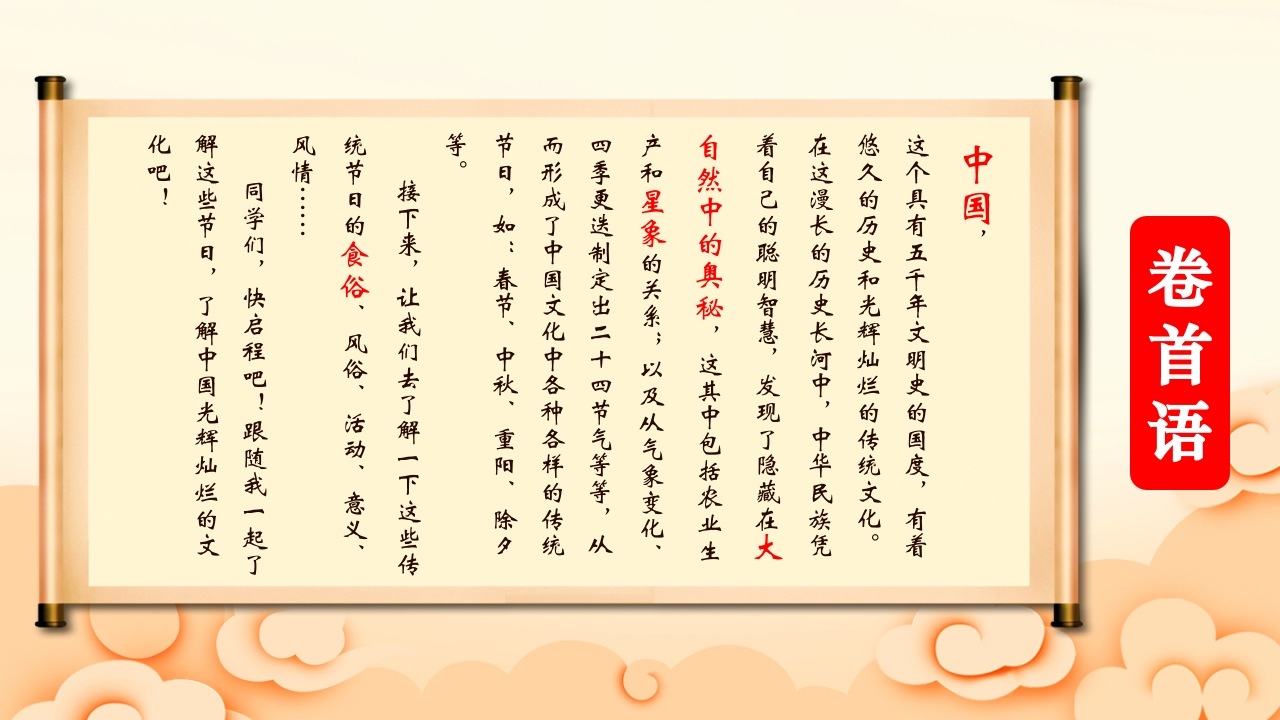 卷首语
中国，
这个具有五千年文明史的国度，有着
悠久的历史和光辉灿烂的传统文化。
在这漫长的历史长河中，中华民族凭
着自己的聪明智慧，发现了隐藏在大
自然中的奥秘，这其中包括农业生
产和星象的关系；以及从气象变化、
四季更迭制定出二十四节气等等，从
而形成了中国文化中各种各样的传统
节日，如：春节、中秋、重阳、除夕
等。
接下来，让我们去了解一下这些传
统节日的食俗、风俗、活动、意义、
风情……
同学们，快启程吧！跟随我一起了
解这些节日，了解中国光辉灿烂的文
化吧！